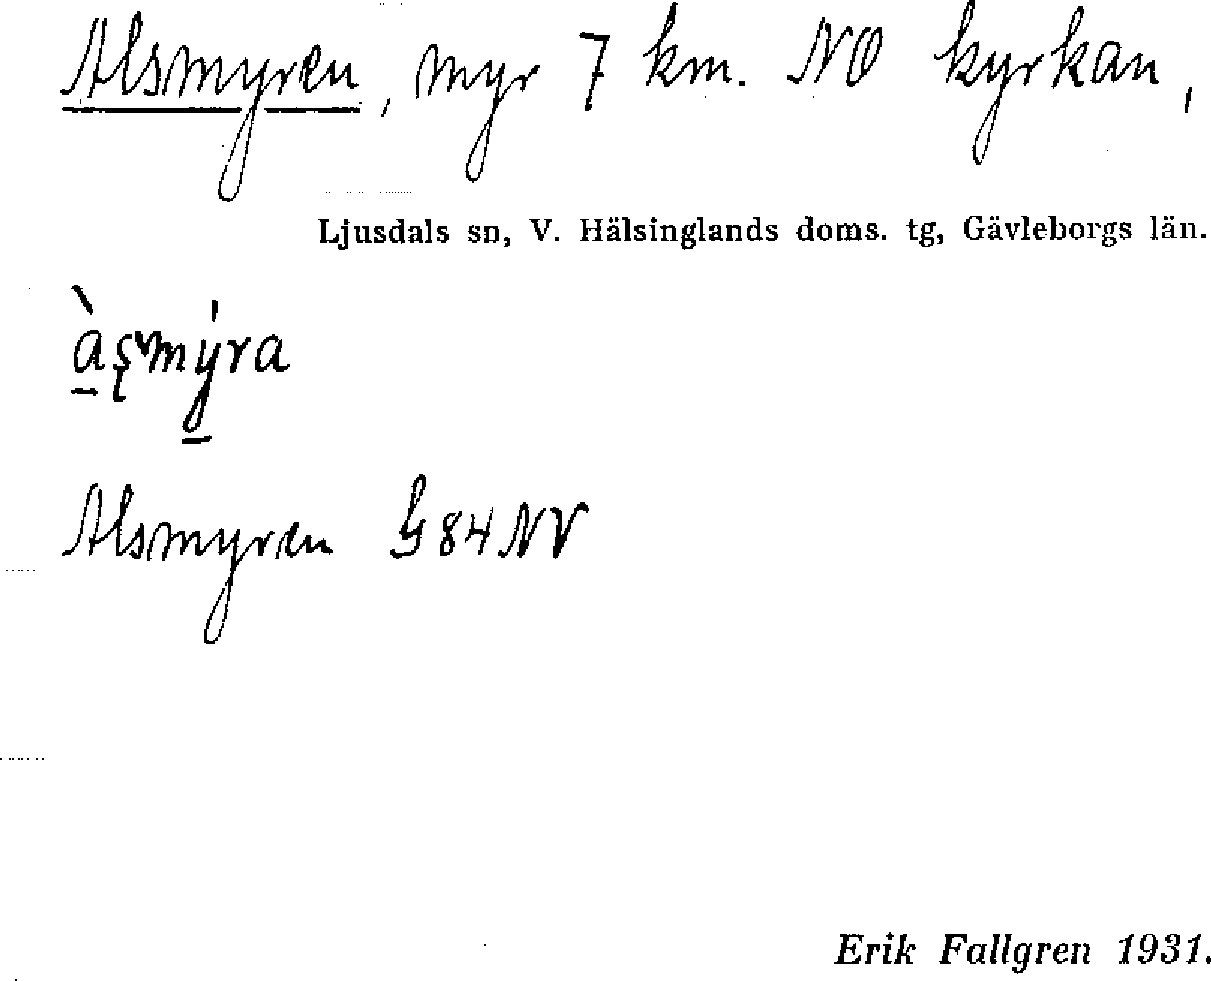 Alsmyren, myr 7 km. NO kyrkan,
Ljusdals sn, V. Hälsinglands doms. tg, Gävleborgs län.
Alsmyren G 84 NV
Erik Fallgren 1931.